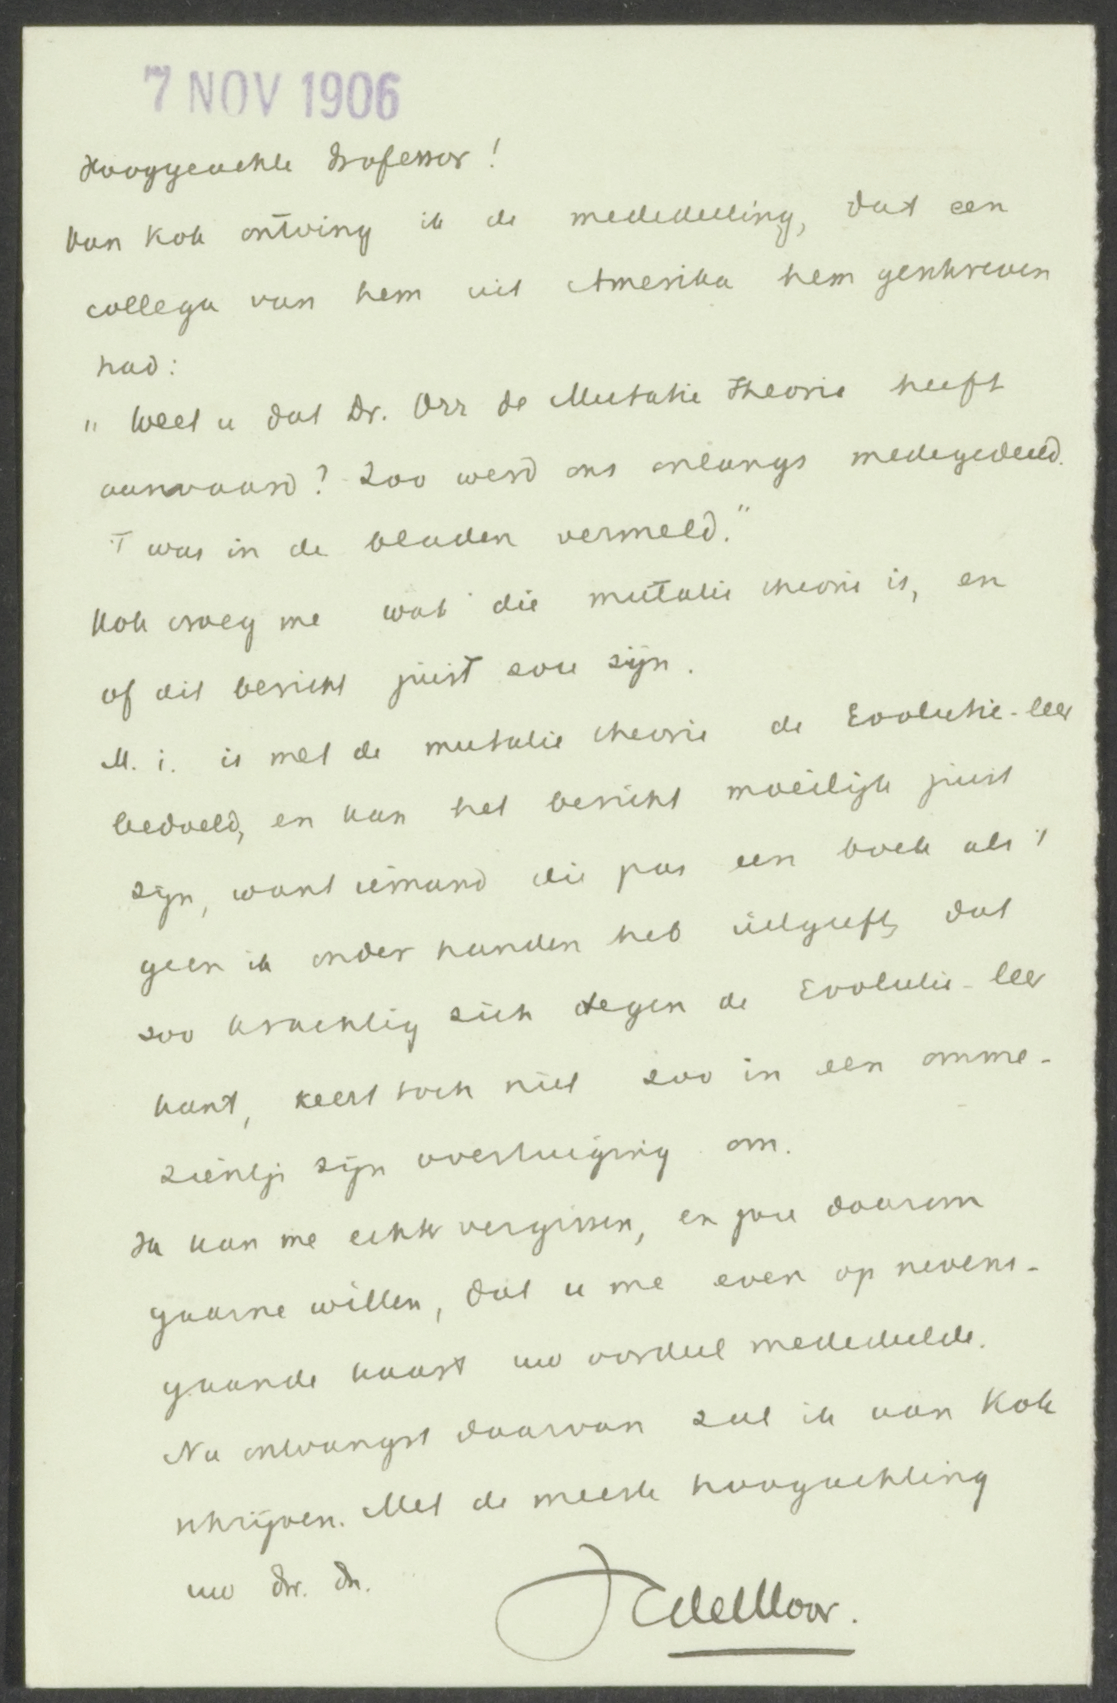 7 NOV 1906
Hooggeachte Professor!
Van Kok ontving ik de mededeeling, dat een
collega van hem uit Amerika hem geschreven
had:
"Weet u dat Dr. Orr de Mutatie Theorie heeft
aanvaard? Zoo werd ons onlangs medegedeeld.
'T was in de bladen vermeld."
Kok vroeg me wat die mutatie theorie is, en
of dit bericht juist zou zijn.
M. i. is met de mutatie theorie de Evolutie-leer
bedoeld, en kan het bericht moeilijk juist
zijn, want iemand die pas een boek als 't
geen ik onder handen heb uitgeeft, dat
zoo krachtig zich tegen de Evolutie-leer
kant, keert toch niet zoo in een omme-
zientje zijn overtuiging om.
Ik kan me echter vergissen, en zou daarom
gaarne willen, dat u me even op nevens-
gaande kaart uw oordeel mededeelde.
Na ontvangst daarvan zal ik aan Kok
schrijven. Met de meeste hoogachting
uw dw. dr.
J C de Moor.